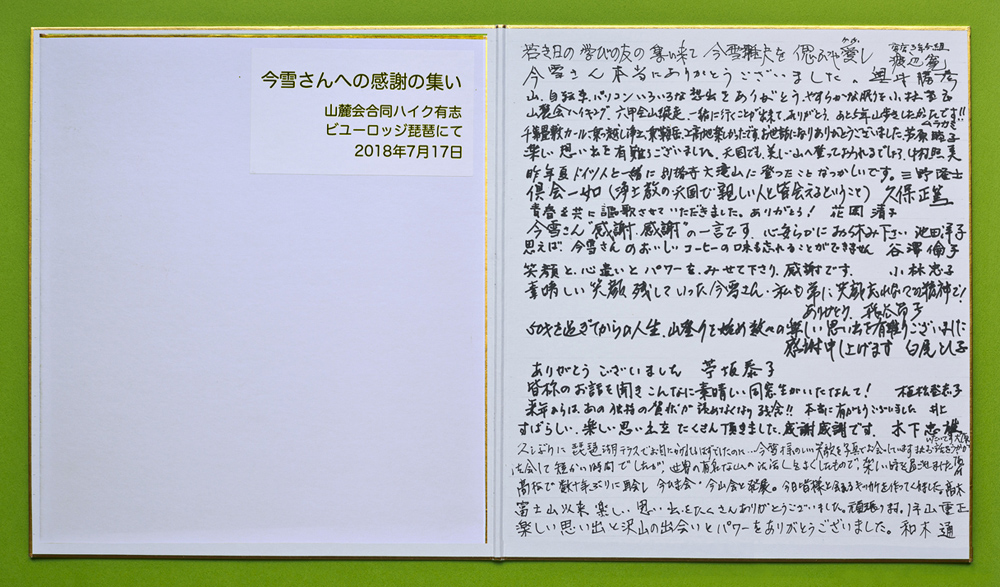 今雪さんへの感謝の集い
山麓会合同ハイク有志
ビユーロッジ琵琶にて
2018年7月17日
若き日の学びの友の集い来て 今雪雅夫を偲びや愛し
今雪さん本当にありがとうございました。 奥井勝彦
山、自転車、パソコン いろいろな想出をありがとう、やすらかな眠りを 小林
山麓会ハイキング、六甲全山縦走、一緒に行くことが出来て、ありがとう、あと5年山歩きしたかったです!!
千畳敷カール、乗っ越し浄土、上高地楽しかったです。お世話になりありがとうございました 芦原
楽しい思い出を有難うございました。天国でも、美しい山へ登っておられるでしょう。
昨年夏ドイツ人と一緒に 大滝山に登ったことなつかしいです。三野隆士
倶会一如(浄土教の天国で親しい人と皆会えるということ) 久保正
青春を共に謳歌させていただきました。ありがとう! 花岡清子
今雪さん“感謝、感謝”の一言です。心安らかにお休み下さい 池田洋子
思えば、今雪さんのおいしいコーヒーの味も忘れることができません 谷澤倫子
笑顔と、心遣いとパワーを、みせて下さり、感謝です。 小林忠子
素晴しい笑顔残していった今雪さん、私も常に笑顔忘れないでの精神で!
ありがとう。
50才を過ぎてからの人生、山登りを始め数々の楽しい思い出を有難うございました
感謝申し上げます 白尾とし子
ありがとうございました 苧坂泰子
皆称のお話を聞きこんなに素晴しい同窓生がいたなんて! 植松登志子
来年からは、あの独特の賀状が読めなくなり残念!! 本当に有がとうございました 井上
すばらしい、楽しい思い出をたくさん頂きました。感謝感謝です。 木下忠雄
久しぶりに琵琶湖テラスでお目にかかれるはずでしたのに…今雪様のやさしい笑顔を写真でお会いしています
法会して短かい時間でしたが、世界の有名な山の話をよくしたもので、楽しい時を過しました
高校で数十年ぶりに再会し 今雪会・今山会と発展。今日皆様と会えるキッカケを作ってくれました。高木
富士山以来、楽しい思い出をたくさんありがとうございました。頑張ります。片山重正
楽しい思い出と沢山の出会いとパワーをありがとうございました。 和木通